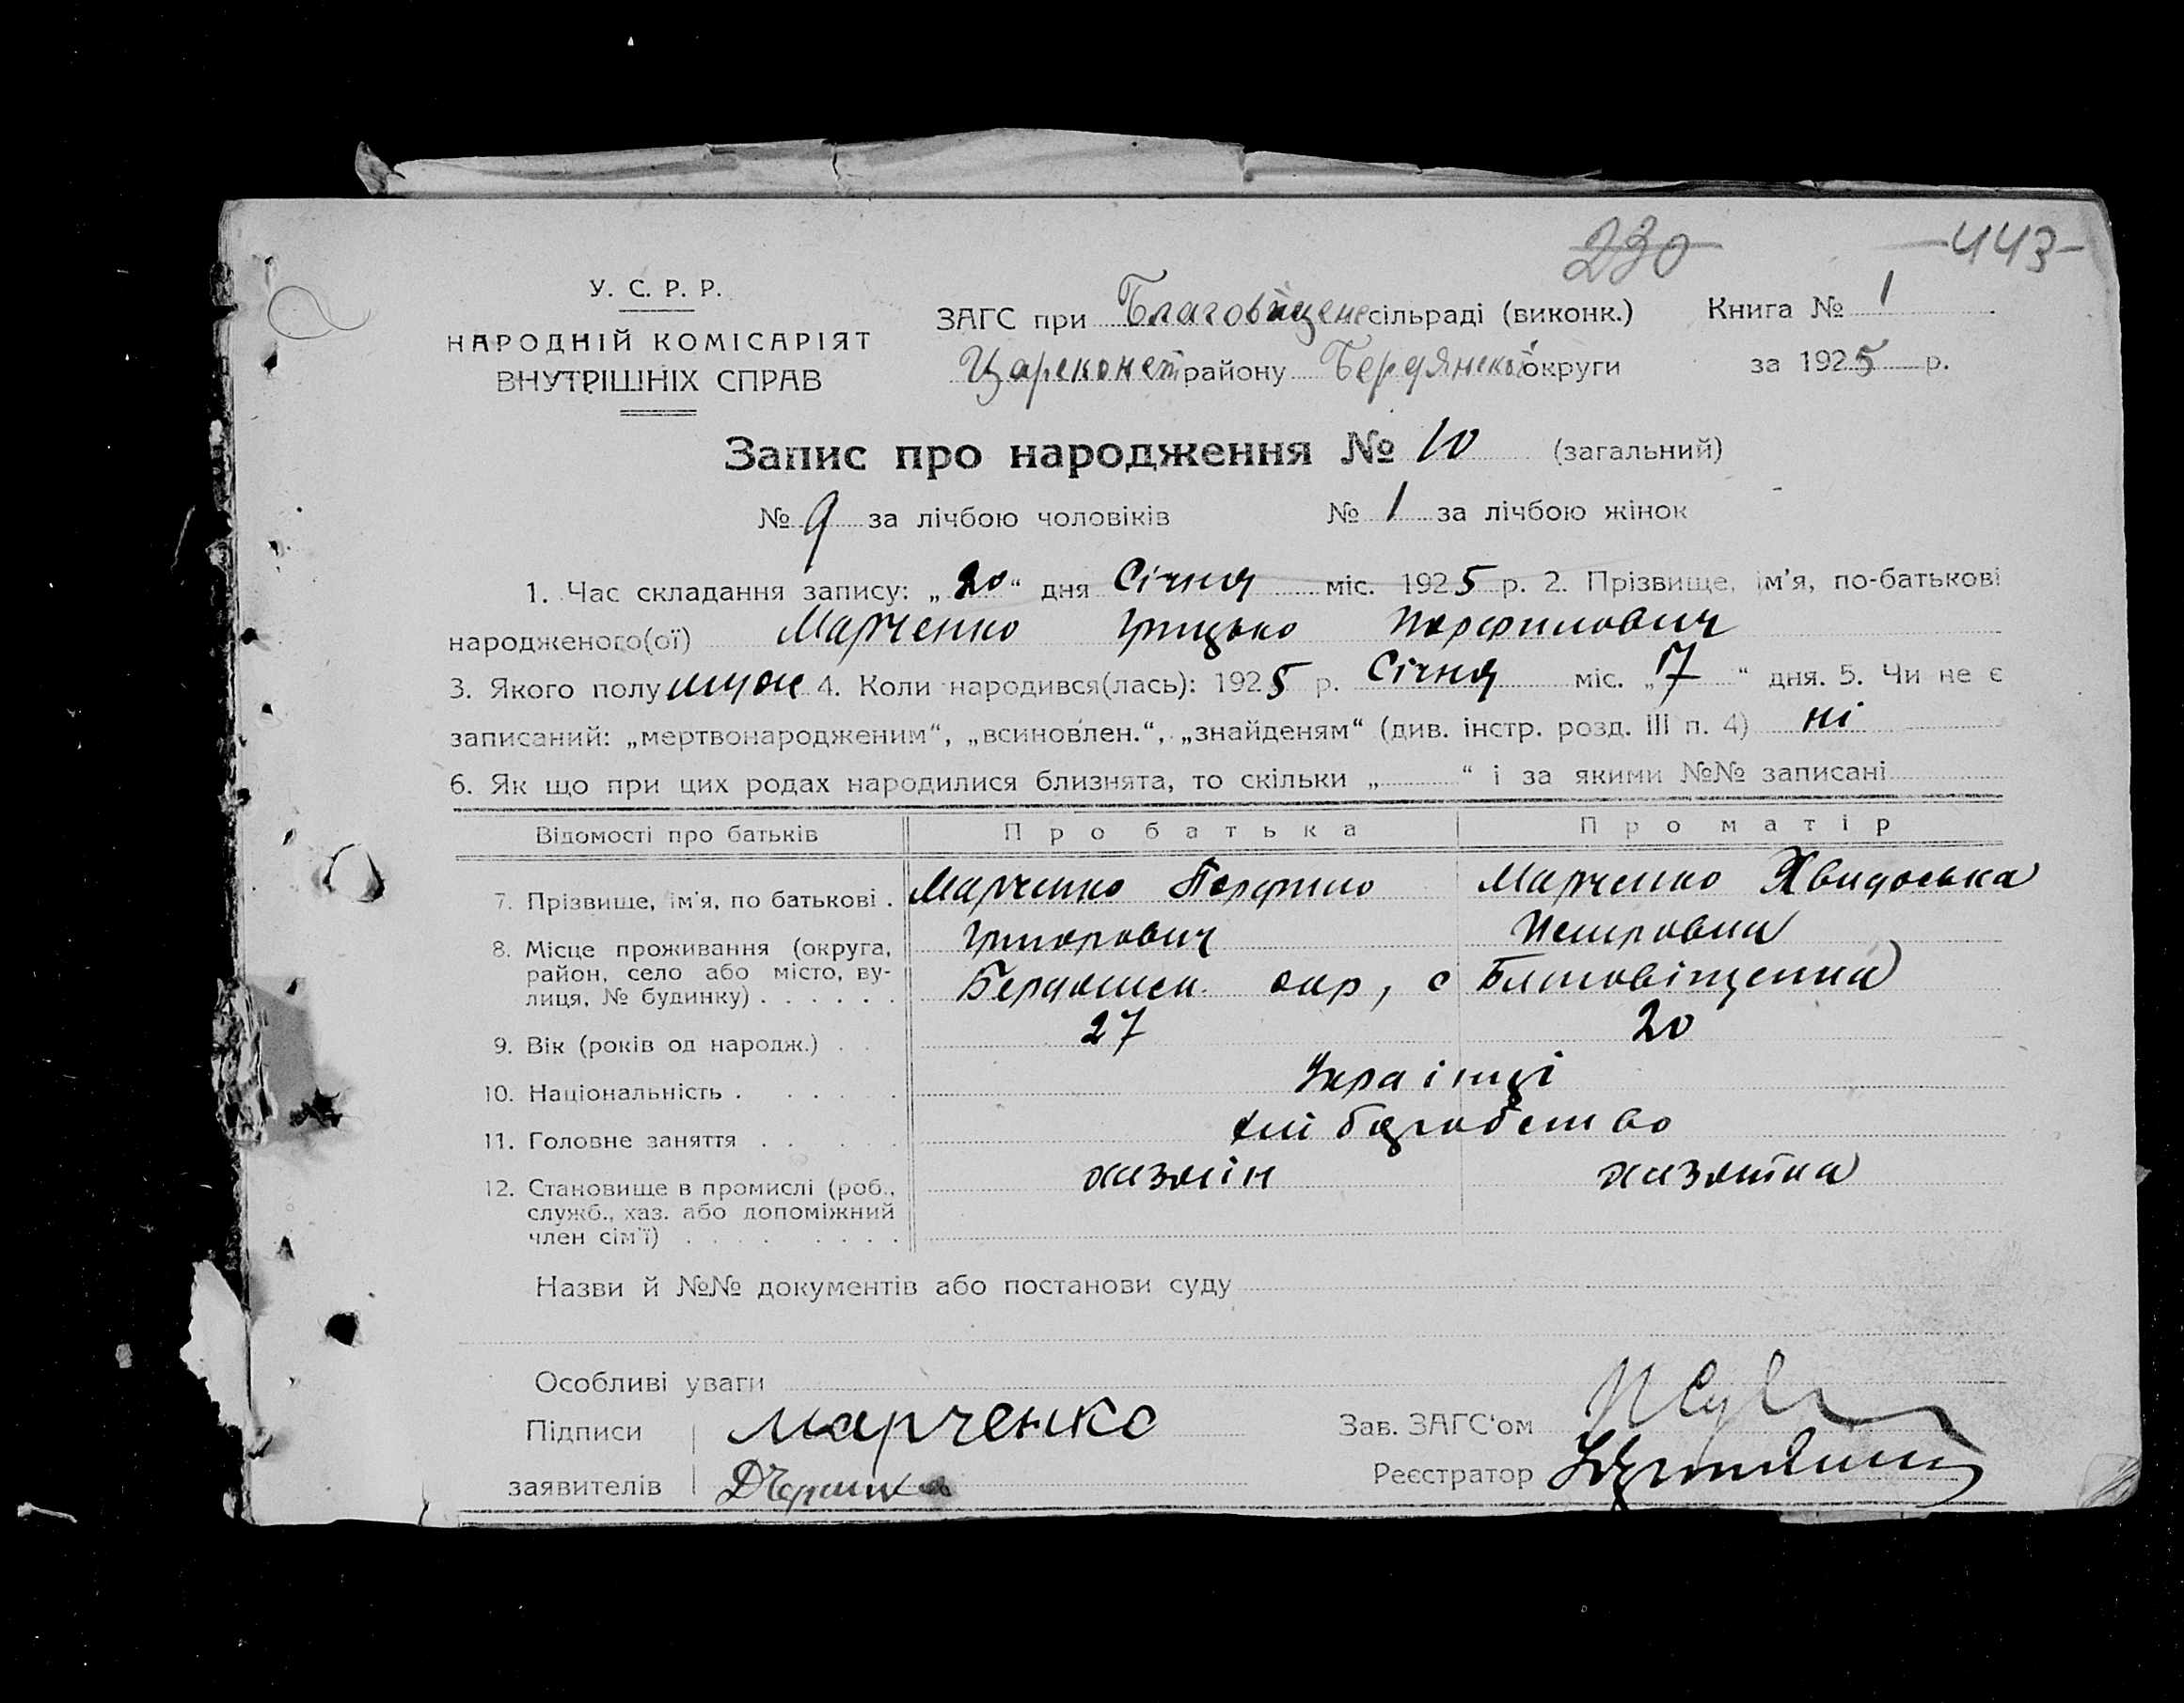 230 -443-
У. С. Р. Р.
НАРОДНІЙ КОМІСАРІЯТ
ВНУТРІШНІХ СПРАВ
ЗАГС при Благовіщенсільраді (виконк.) Книга № 1
Цареконстрайону Бердянськоїокруги за 1925 р.
Запис про народження № 10 (загальний)
№ 9 за лічбою чоловіків № 1 за лічбою жінок
1. Час складання запису: „20“ дня Січня міс. 1925 р. 2. Прізвище, ім'я, по-батькові
народженого(ої) Марченко Грицько Порфилович
3. Якого полу муж 4. Коли народився(лась): 1925 р. Січня міс. „17“ дня. 5. Чи не є
записаний: „мертвонародженим“, „всиновлен.“, „знайденям“ (див. інстр. розд. III п. 4) ні
6. Як що при цих родах народилися близнята, то скільки „ “ і за якими №№ записані
Відомості про батьків Про батька Про матір
7. Прізвище, ім'я, по батькові . Марченко Марченко Хвидоська
8. Місце проживання (округа, Григорович Петровна
район, село або місто, ву-
лиця, № будинку) . . . . . . окр, с Благовіщенка
9. Вік (років од народж.) . . 27 20
10. Національність . . . . . . Українці
11. Головне заняття . . . . хліборобство
12. Становище в промислі (роб., хазяїн хазяйка
служб., хаз. або допоміжний
член сім'ї) . . . . . . . .
Назви й №№ документів або постанови суду
Особливі уваги
Підписи Марченко Зав. ЗАГС'ом
заявителів Реєстратор